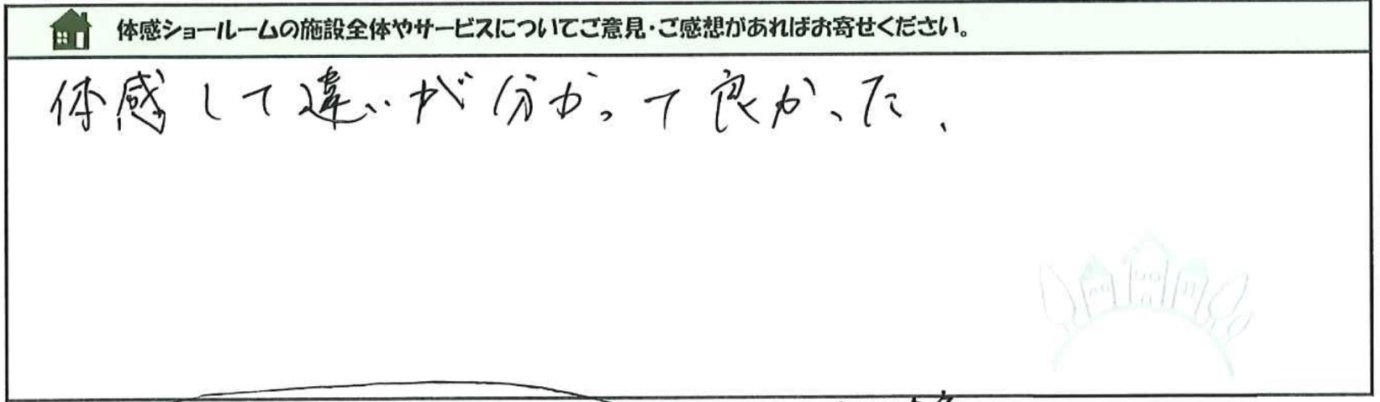 体感ショールームの施設全体やサービスについてご意見・ご感想があればお寄せください。
体感して違いが分かって良かった、